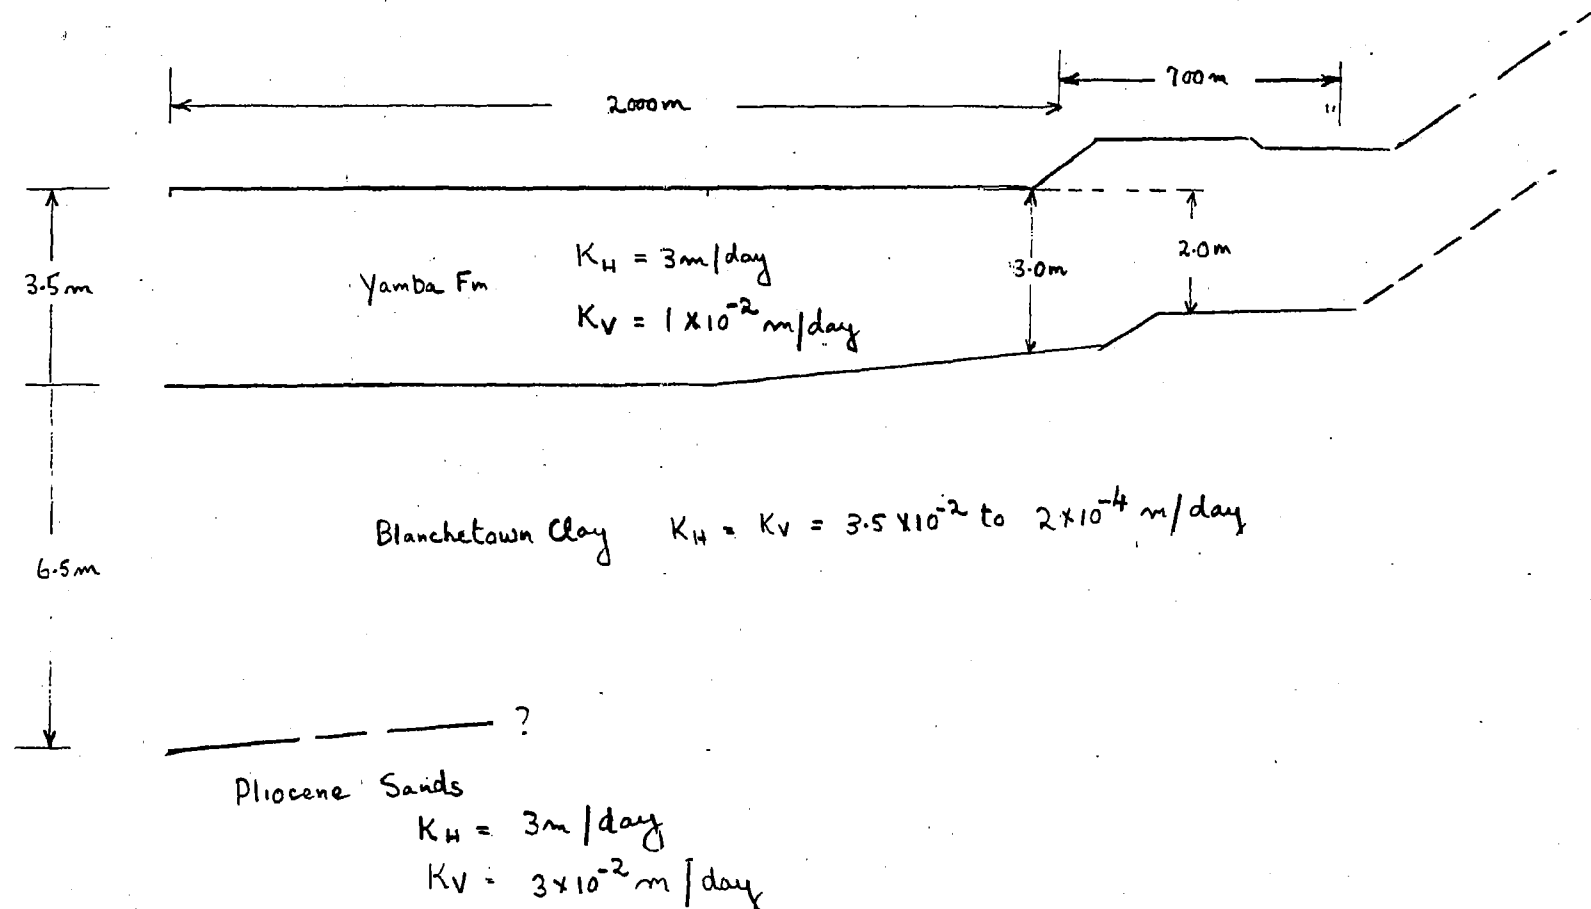 700m
2000m
"
3.5m
Yamba Fm
K_H = 3m/day
K_V = 1 x 10^-2 m/day
3.0m
2.0m
Blanchetown Clay K_H = K_V = 3.5 x 10^-2 to 2 x 10^-4 m/day
6.5m
?
Pliocene Sands
K_H = 3m/day
K_V = 3 x 10^-2 m/day